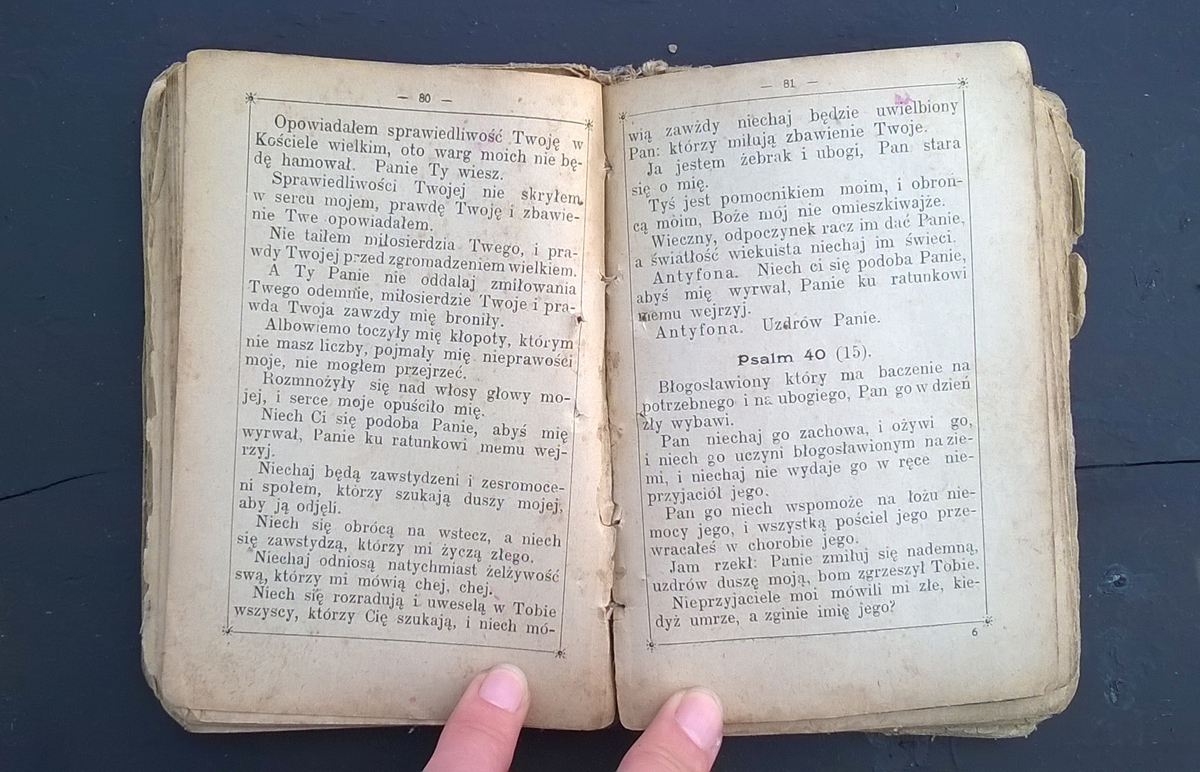 — 80 —
Opowiadałem sprawiedliwość Twoję w
Kościele wielkim, oto warg moich nie bę-
dę hamował. Panie Ty wiesz.
Sprawiedliwości Twojej nie skryłem
w sercu mojem, prawdę Twoję i zbawie-
nie Twe opowiadałem.
Nie taiłem miłosierdzia Twego, i pra-
wdy Twojej przed zgromadzeniem wielkiem.
A Ty Panie nie oddalaj zmiłowania
Twego odemnie, miłosierdzie Twoje i pra-
wda Twoja zawzdy mię broniły.
Albowiemo toczyły mię kłopoty, którym
nie masz liczby, pojmały mię nieprawości
moje, nie mogłem przejrzeć.
Rozmnożyły się nad włosy głowy mo-
jej, i serce moje opuściło mię.
Niech Ci się podoba Panie, abyś mię
wyrwał, Panie ku ratunkowi memu wej-
rzyj.
Niechaj będą zawstydzeni i zesromoce-
ni społem, którzy szukają duszy mojej,
aby ją odjęli.
Niech się obrócą na wstecz, a niech
się zawstydzą, którzy mi życzą złego.
Niechaj odniosą natychmiast żelżywość
swą, którzy mi mówią chej, chej.
Niech się rozradują i uweselą w Tobie
wszyscy, którzy Cię szukają, i niech mó-
— 81 —
wią zawżdy niechaj będzie uwielbiony
Pan: którzy miłują zbawienie Twoje.
Ja jestem żebrak i ubogi, Pan stara
się o mię.
Tyś jest pomocnikiem moim, i obroń-
cą moim, Boże mój nie omieszkiwajże.
Wieczny, odpoczynek racz im dać Panie,
a światłość wiekuista niechaj im świeci.
Antyfona. Niech ci się podoba Panie,
abyś mię wyrwał, Panie ku ratunkowi
memu wejrzyj.
Antyfona. Uzdrów Panie.
Psalm 40 (15).
Błogosławiony który ma baczenie na
potrzebnego i na ubogiego, Pan go w dzień
zły wybawi.
Pan niechaj go zachowa, i ożywi go,
i niech go uczyni błogosławionym na zie-
mi, i niechaj nie wydaje go w ręce nie-
przyjaciół jego.
Pan go niech wspomoże na łożu nie-
mocy jego, i wszystką pościel jego prze-
wracałeś w chorobie jego.
Jam rzekł: Panie zmiłuj się nademną,
uzdrów duszę moją, bom zgrzeszył Tobie.
Nieprzyjaciele moi mówili mi złe, kie-
dyż umrze, a zginie imię jego?
6